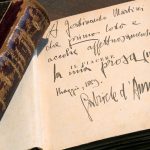 A Ferdinando Martini
che primo lodò e
accolse affettuosamente
IL PIACERE
la mia prosa
Maggio, 1889.
Gabriele d'Annun